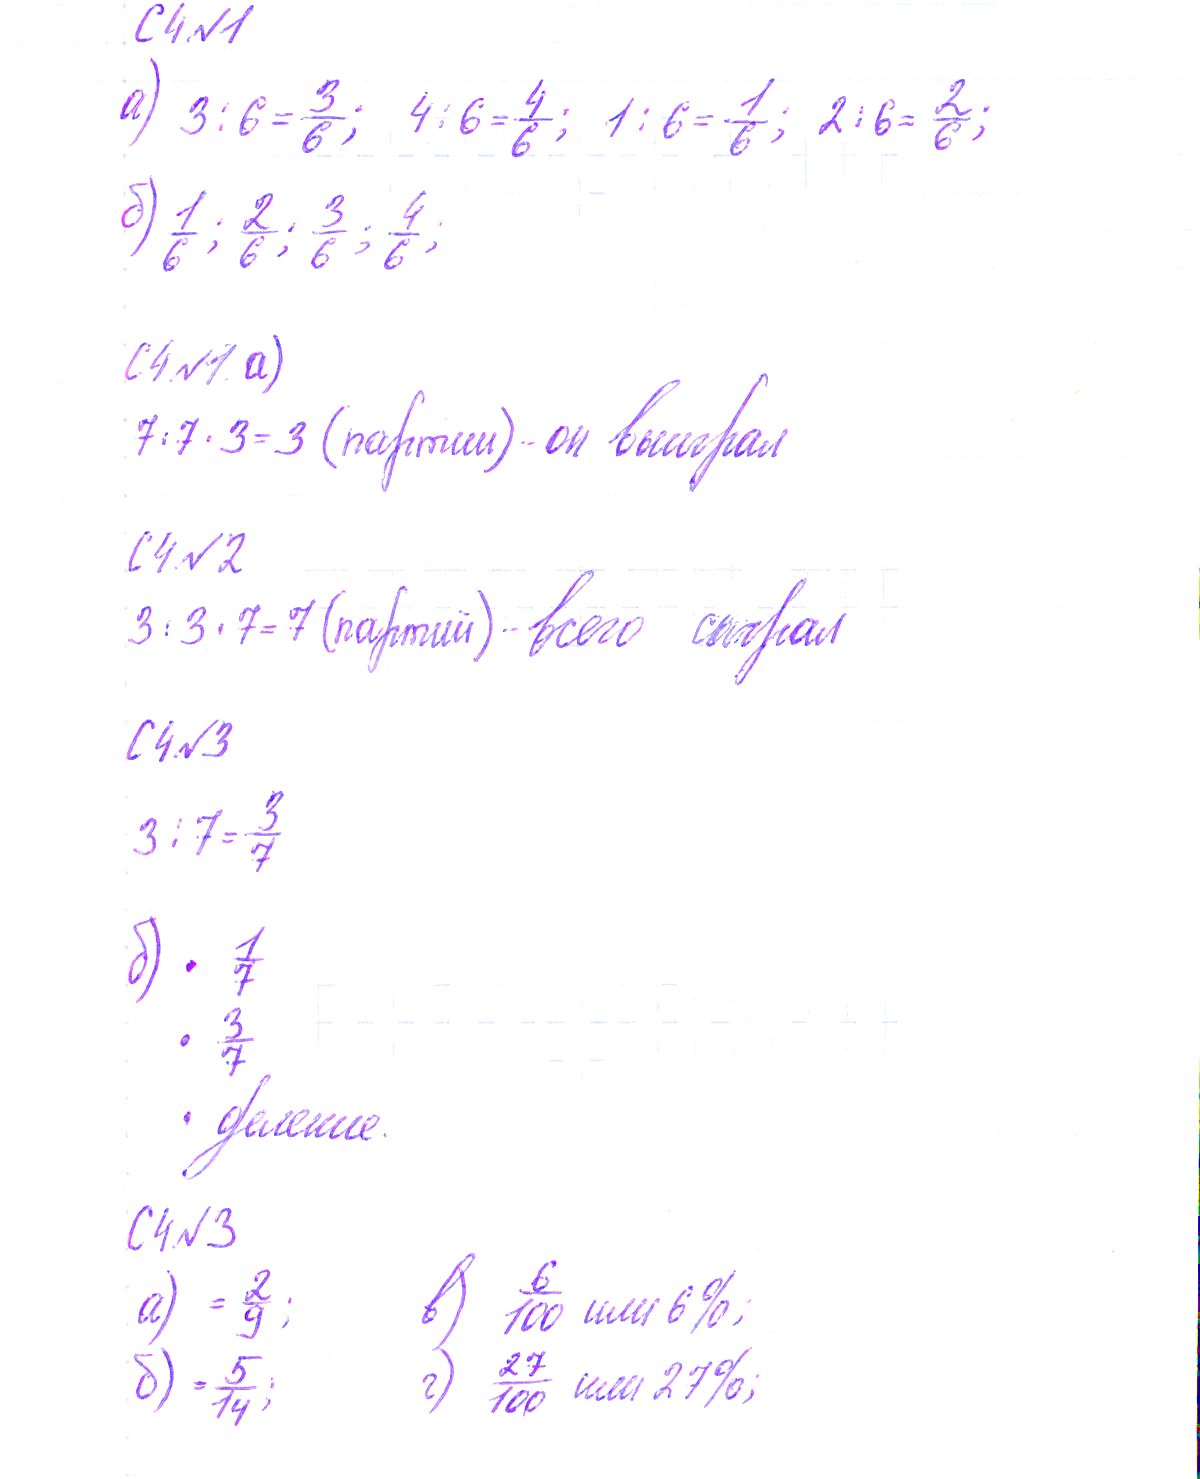 С4 №1
а) 3 : 6 = 3/6; 4 : 6 = 4/6; 1 : 6 = 1/6; 2 : 6 = 2/6;
б) 1/6; 2/6; 3/6; 4/6;
С4 №1 а)
7 : 7 · 3 = 3 (партии) - он выиграл
С4 №2
3 : 3 · 7 = 7 (партий) - всего сыграл
С4 №3
3 : 7 = 3/7
б) · 1/7
· 3/7
· деление.
С4 №3
а) = 2/9; в) 6/100 или 6%;
б) = 5/14; г) 27/100 или 27%;